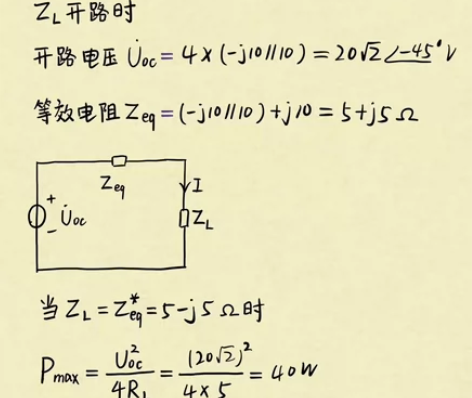 Z_L开路时
开路电压 U̇oc = 4×(-j10//10) = 20√2∠-45° V
等效电阻 Zeq = (-j10//10)+j10 = 5+j5 Ω
Zeq
I
+
U̇oc
-
Z_L
当 Z_L = Z*eq = 5-j5 Ω时
Pmax = U²oc/4R_L = (20√2)²/4×5 = 40W